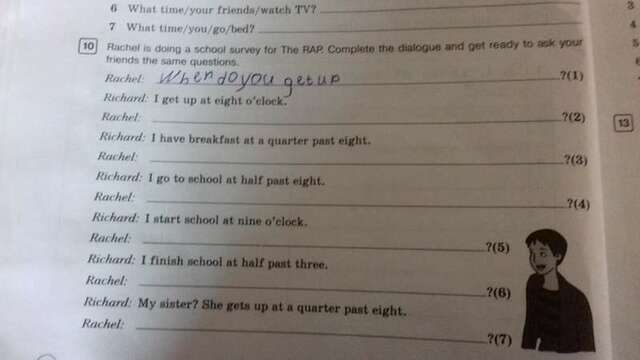 6 What time/your friends/watch TV?
7 What time/you/go/bed?
10 Rachel is doing a school survey for The RAP. Complete the dialogue and get ready to ask your
friends the same questions.
Rachel: When do you get up ?(1)
Richard: I get up at eight o'clock.
Rachel: ?(2)
Richard: I have breakfast at a quarter past eight.
Rachel: ?(3)
Richard: I go to school at half past eight.
Rachel: ?(4)
Richard: I start school at nine o'clock.
Rachel: ?(5)
Richard: I finish school at half past three.
Rachel: ?(6)
Richard: My sister? She gets up at a quarter past eight.
Rachel: ?(7)
3
4
5
6
13